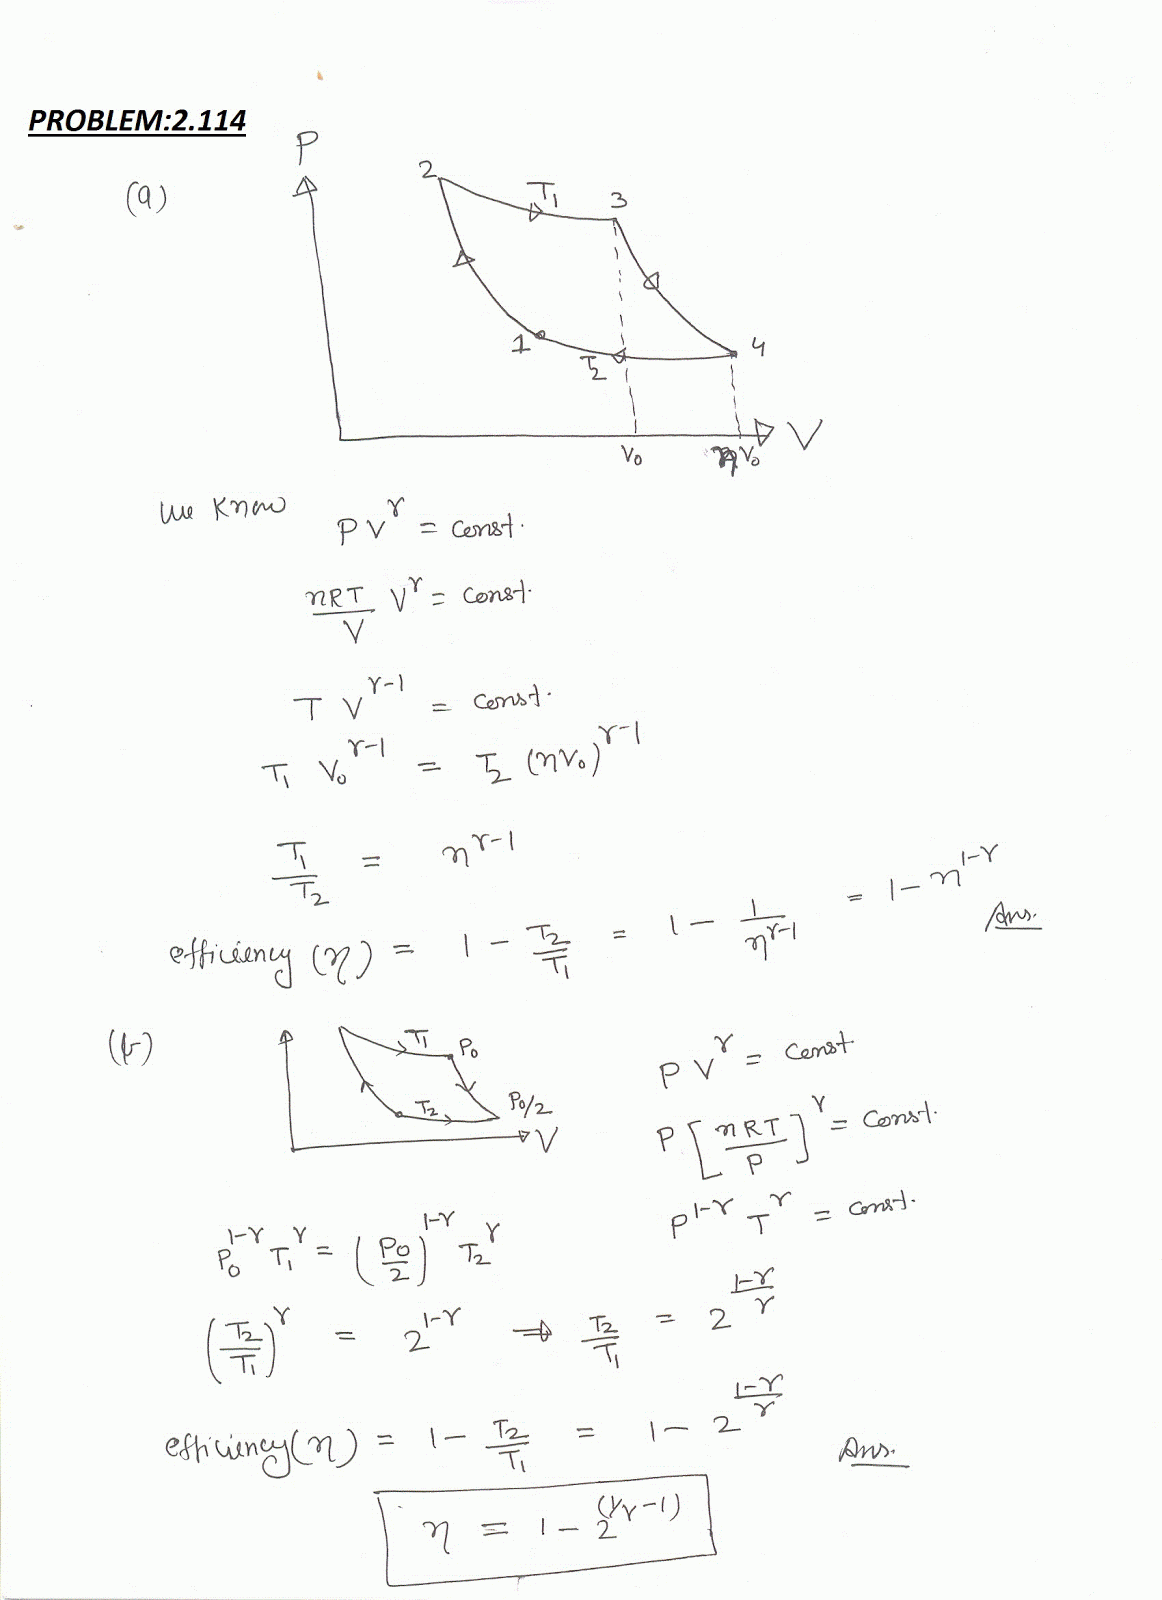 PROBLEM:2.114
(a)
P
2
T₁
3
1
T₂
4
V₀
nV₀
V
we know
PV^γ = const.
nRT/V V^γ = const.
T V^(γ-1) = const.
T₁ V₀^(γ-1) = T₂ (nV₀)^(γ-1)
T₁/T₂ = n^(γ-1)
efficiency (η) = 1 - T₂/T₁ = 1 - 1/n^(γ-1) = 1 - n^(1-γ) Ans.
(b)
T₁
P₀
T₂
P₀/2
V
PV^γ = const
P[nRT/P]^γ = const.
P^(1-γ) T^γ = const.
P₀^(1-γ) T₁^γ = (P₀/2)^(1-γ) T₂^γ
(T₂/T₁)^γ = 2^(1-γ) ⇒ T₂/T₁ = 2^((1-γ)/γ)
efficiency(η) = 1 - T₂/T₁ = 1 - 2^((1-γ)/γ) Ans.
η = 1 - 2^(1/γ-1)